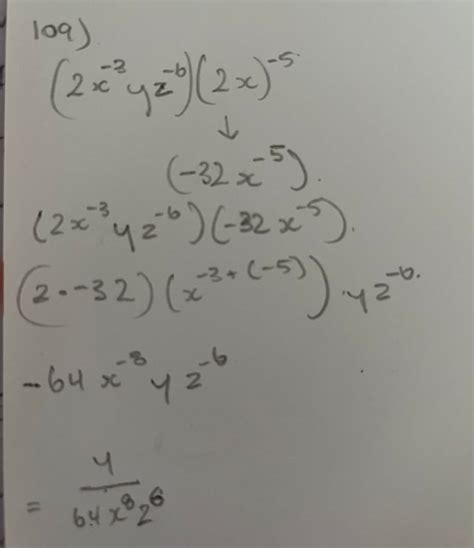 109)
(2x⁻³yz⁻⁶)(2x)⁻⁵
↓
(-32x⁻⁵).
(2x⁻³yz⁻⁶)(-32x⁻⁵).
(2·-32)(x⁻³⁺⁽⁻⁵⁾)·yz⁻⁶.
-64x⁻⁸yz⁻⁶
= y/64x⁸z⁶